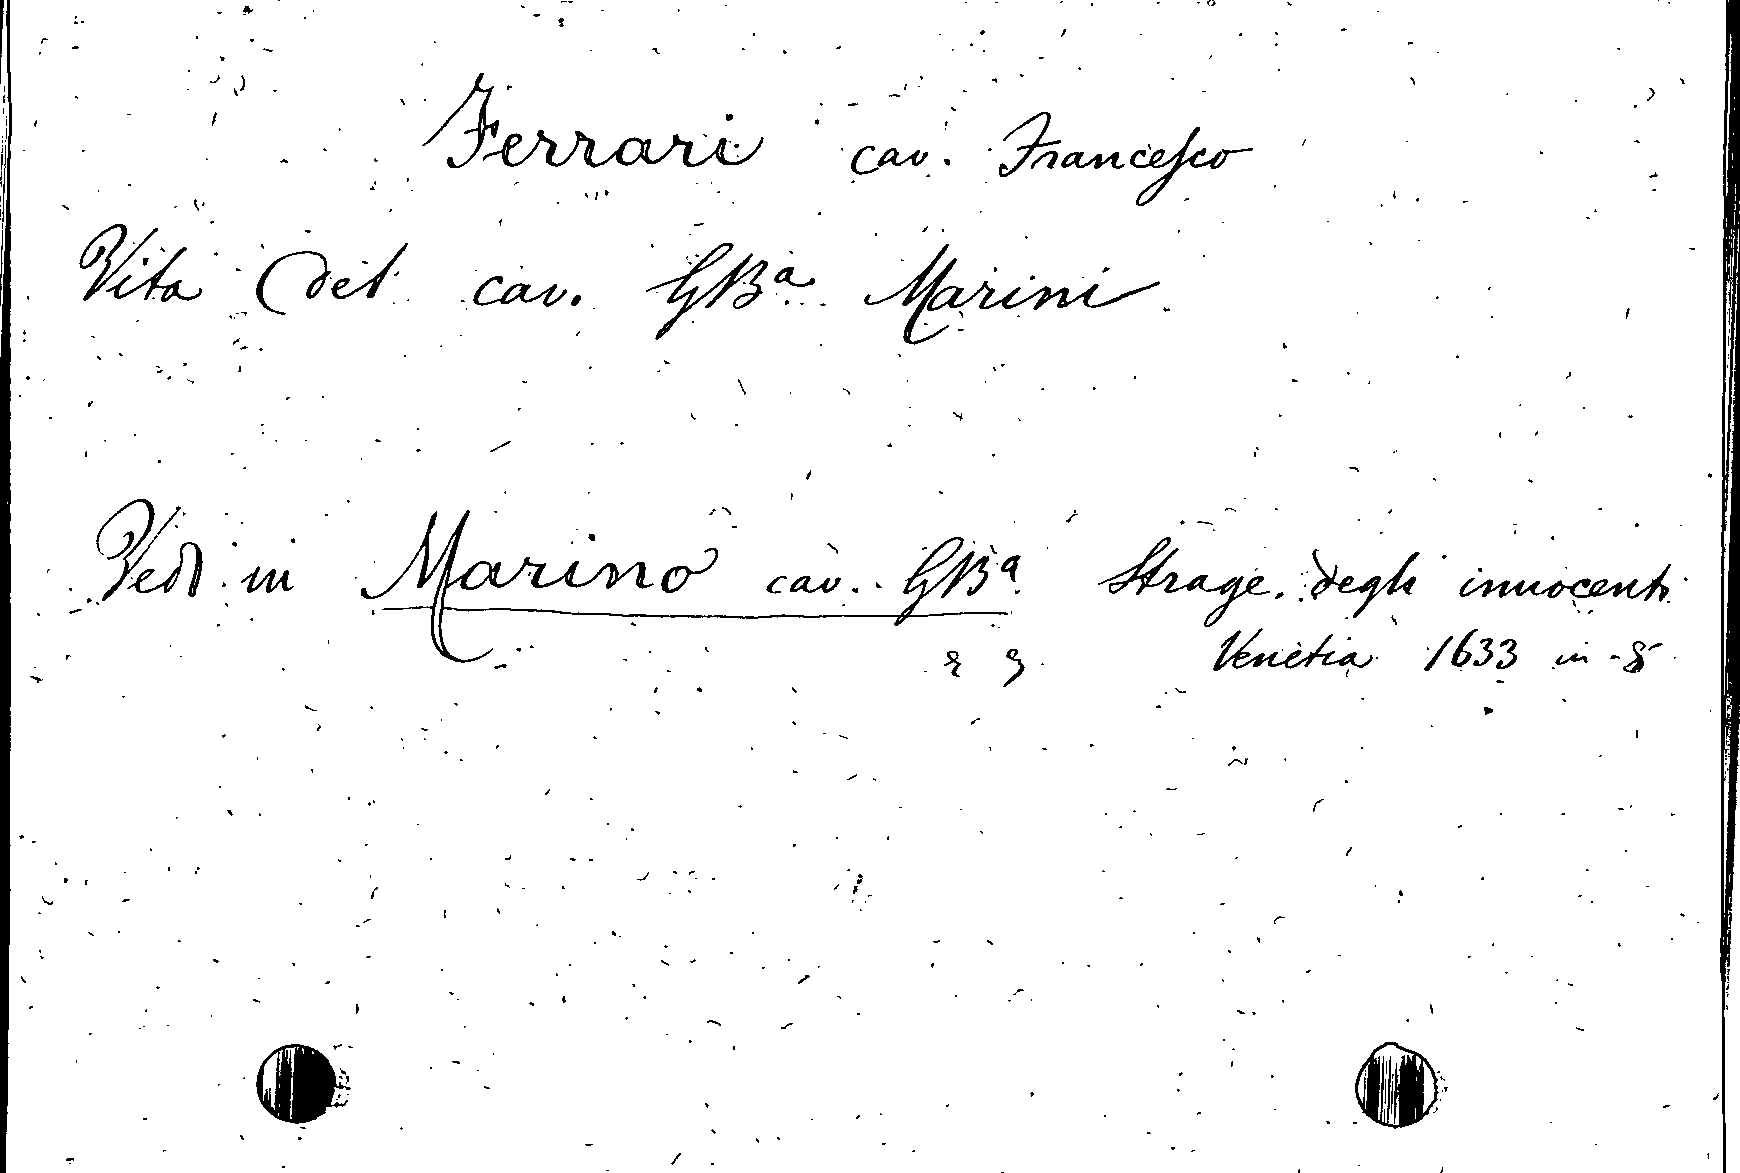 Ferrari cav. Francesco
Vita del cav. GBa Marini
Vedi in Marino cav. GBa Strage degli innocenti
Venetia 1633 in-8